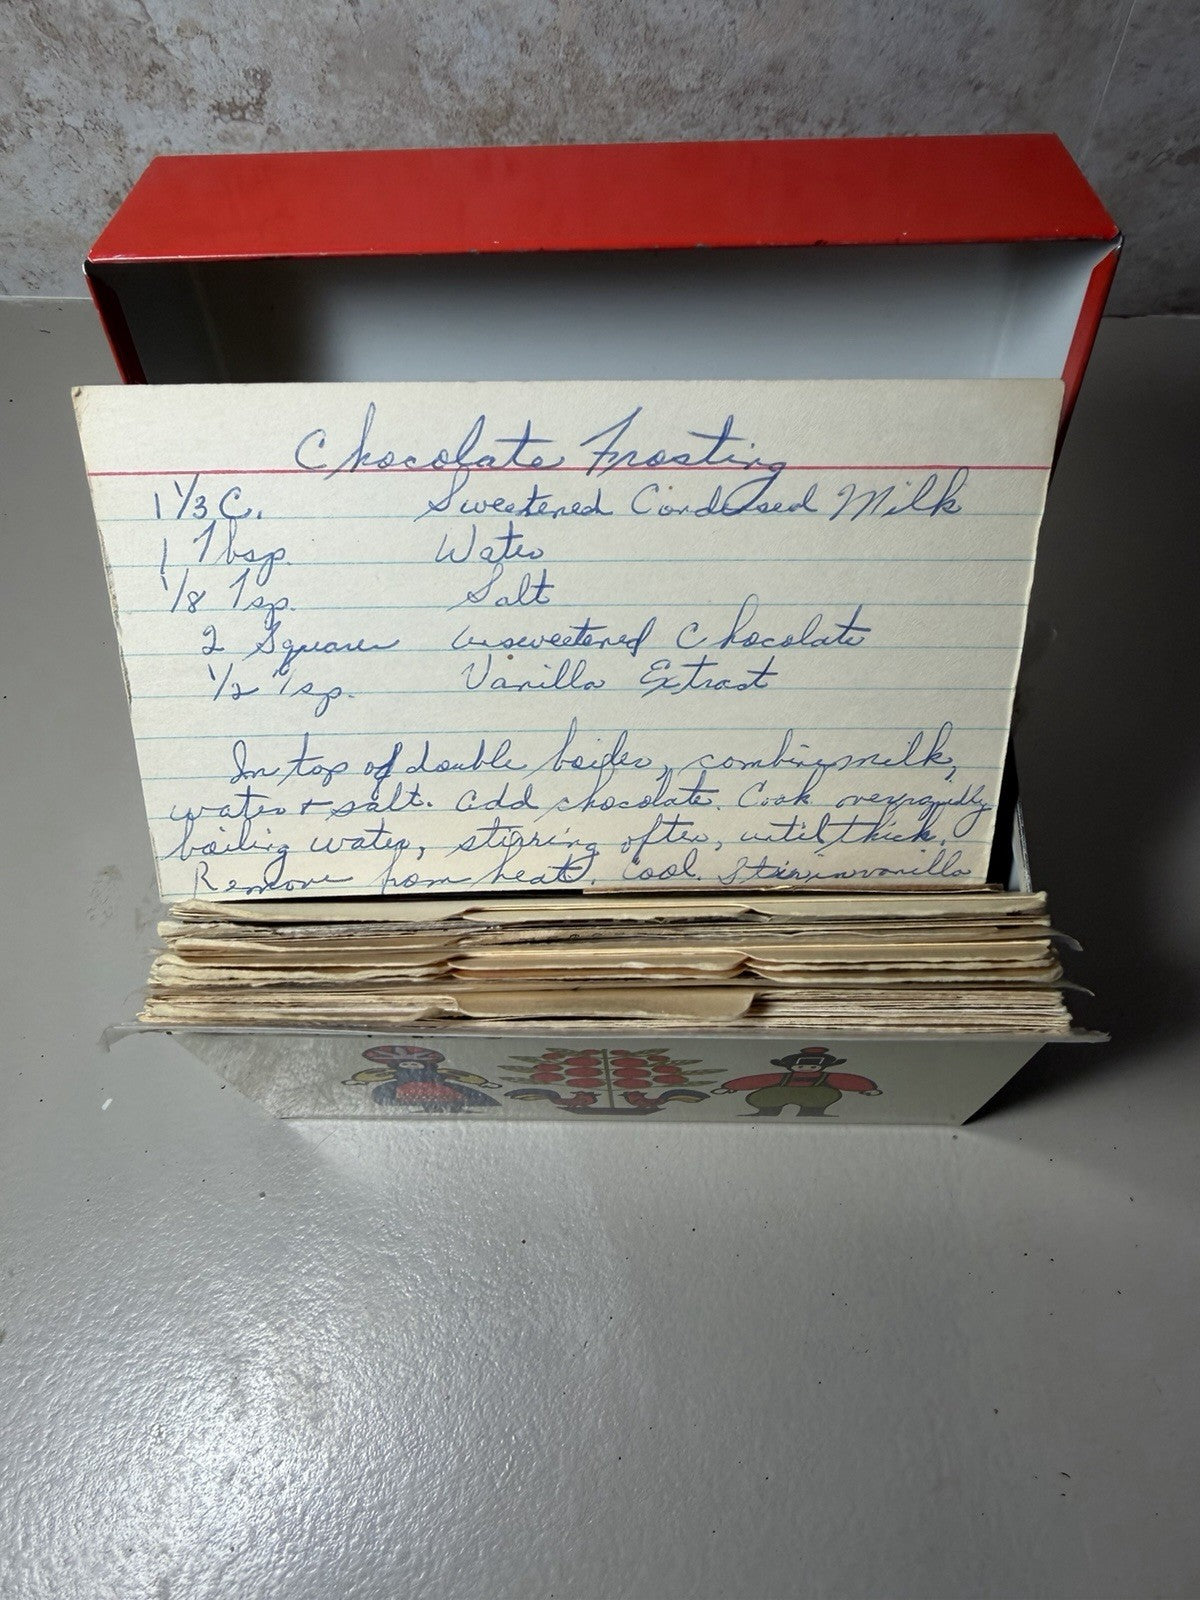 Chocolate Frosting
1 1/3 C. Sweetened Condensed Milk
1 Tbsp. Water
1/8 Tsp. Salt
2 Squares unsweetened Chocolate
1/2 Tsp. Vanilla Extract
In top of double boiler, combine milk,
water + salt. add chocolate. Cook over rapidly
boiling water, stirring often, until thick.
Remove from heat. Cool. Stir in vanilla